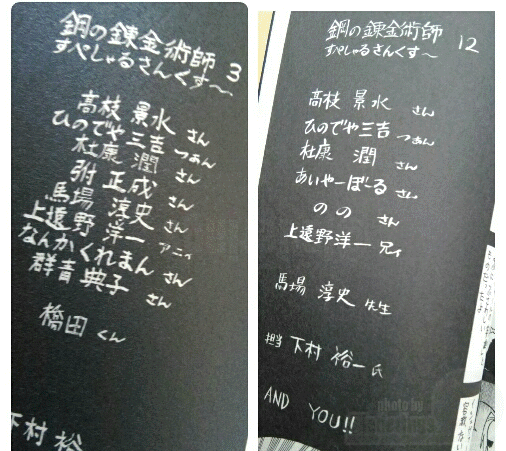 鋼の錬金術師 3
すぺしゃるさんくす〜
高枝 景水 さん
ひのでや三吉 つぁん
杜康 潤 さん
附 正成 さん
馬場 淳史 さん
上遠野 洋一 アニィ
なんかくれまん さん
群青 典子 さん
橋田 くん
下村 裕
鋼の錬金術師 12
すぺしゃるさんくす〜
高枝 景水 さん
ひのでや三吉 つぁん
杜康 潤 さん
あいやーぼーる さん
のの さん
上遠野洋一 兄ィ
馬場 淳史 先生
担当 下村 裕一 氏
AND YOU!!
photo by